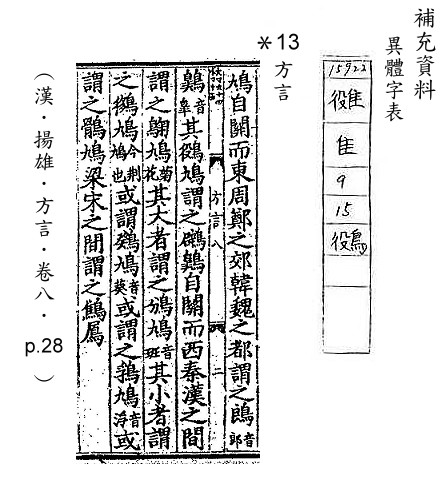 補充資料
異體字表
15922
隹
9
15
*13
方言
鳩自關而東周鄭之郊韓魏之都謂之音郎
鷎音皋其鳩謂之鷎自關而西秦漢之間
方言八 二
謂之鳩菊花其大者謂之鳻鳩音班其小者謂
之鳩今荊鳩也或謂鳩音葵或謂之鳩音浮或
謂之鶻鳩梁宋之間謂之
（漢・揚雄・方言・卷八・p.28）